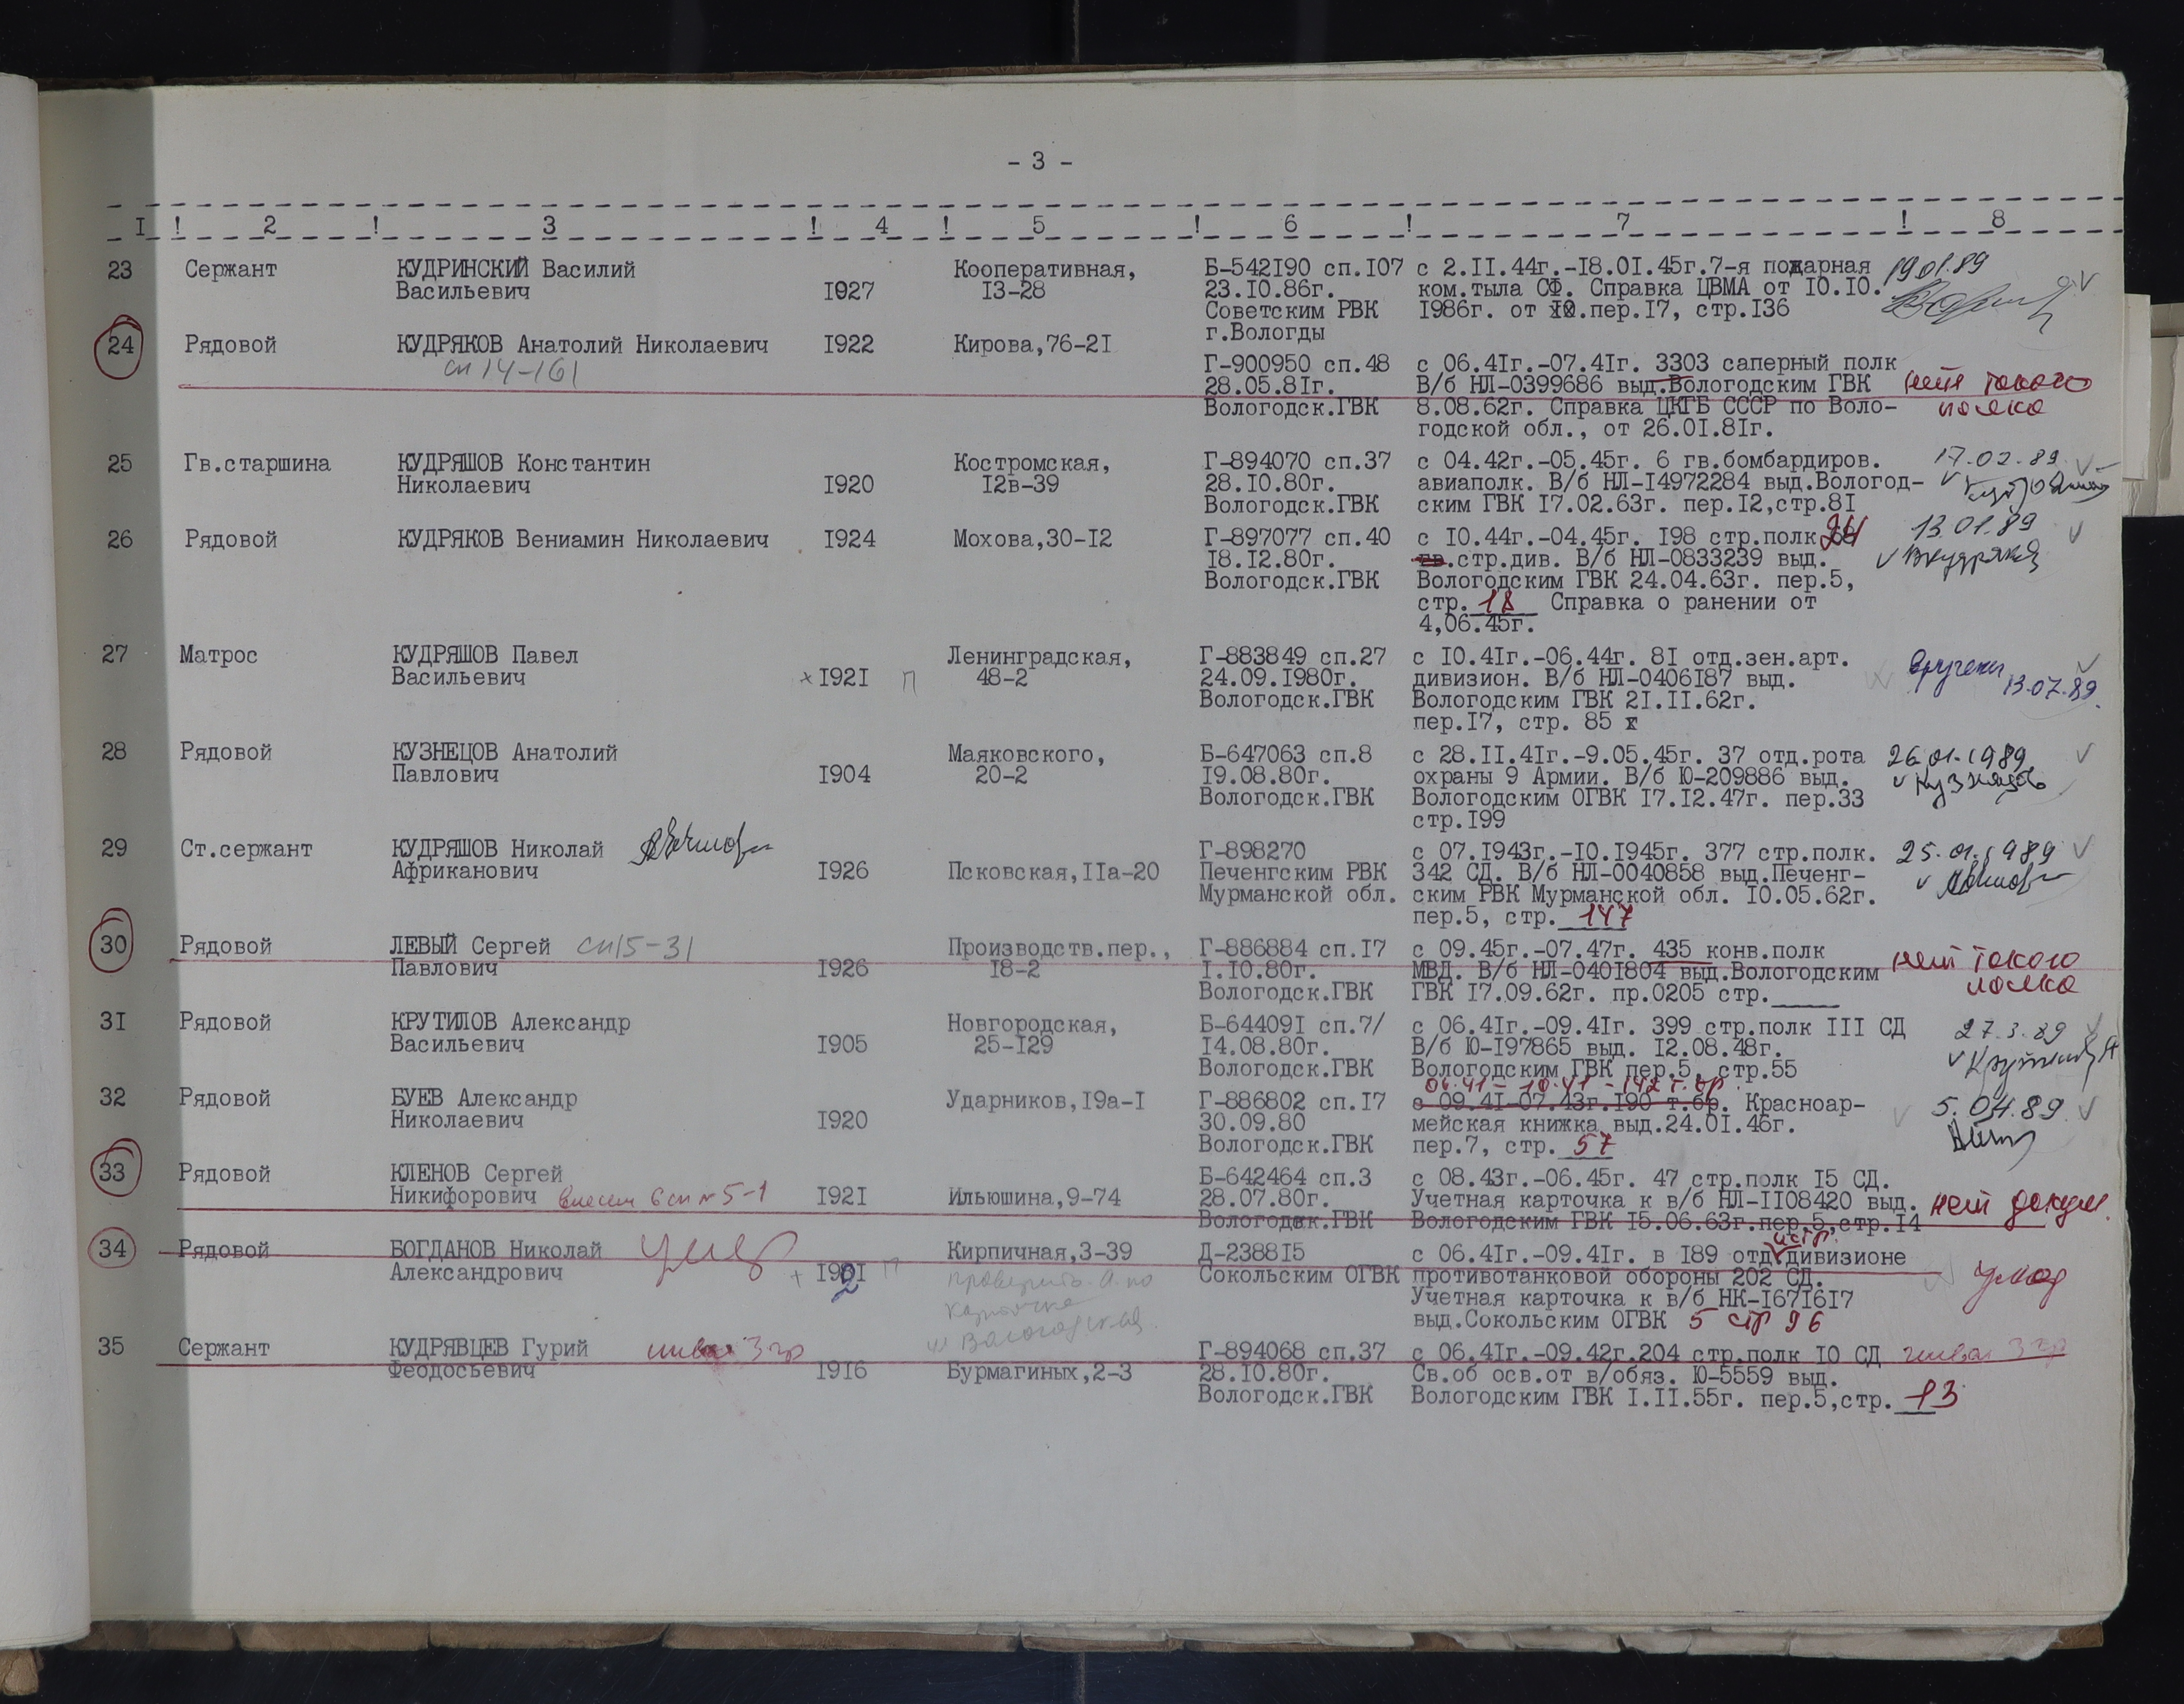 - 3 -
I ! 2 ! 3 ! 4 ! 5 ! 6 ! 7 ! 8
23 Сержант КУДРИНСКИЙ Василий Кооперативная, Б-542I90 сп.I07 с 2.II.44г.-I8.0I.45г.7-я пожарная 19.01.89
Васильевич I927 I3-28 23.I0.86г. ком.тыла СФ. Справка ЦВМА от I0.I0.
Советским РВК I986г. от I0.пер.I7, стр.I36
г.Вологды
24 Рядовой КУДРЯКОВ Анатолий Николаевич I922 Кирова,76-2I
сп 14-161 Г-900950 сп.48 с 06.4Iг.-07.4Iг. 3303 саперный полк
28.05.8Iг. В/б НЛ-0399686 выд.Вологодским ГВК нет такого
Вологодск.ГВК 8.08.62г. Справка ЦКГБ СССР по Воло- полка
годской обл., от 26.0I.8Iг.
25 Гв.старшина КУДРЯШОВ Константин Костромская, Г-894070 сп.37 с 04.42г.-05.45г. 6 гв.бомбардиров. 17.02.89
Николаевич I920 I2в-39 28.I0.80г. авиаполк. В/б НЛ-I4972284 выд.Вологод-
Вологодск.ГВК ским ГВК I7.02.63г. пер.I2,стр.8I
26 Рядовой КУДРЯКОВ Вениамин Николаевич I924 Мохова,30-I2 Г-897077 сп.40 с I0.44г.-04.45г. I98 стр.полк 13.01.89
I8.I2.80г. гв.стр.див. В/б НЛ-0833239 выд. Вкудряков
Вологодск.ГВК Вологодским ГВК 24.04.63г. пер.5,
стр. 18 Справка о ранении от
4,06.45г.
27 Матрос КУДРЯШОВ Павел Ленинградская, Г-883849 сп.27 с I0.4Iг.-06.44г. 8I отд.зен.арт. вручено
Васильевич I92I П 48-2 24.09.I980г. дивизион. В/б НЛ-0406I87 выд. 13.07.89.
Вологодск.ГВК Вологодским ГВК 2I.II.62г.
пер.I7, стр. 85 г
28 Рядовой КУЗНЕЦОВ Анатолий Маяковского, Б-647063 сп.8 с 28.II.4Iг.-9.05.45г. 37 отд.рота 26.01.1989
Павлович I904 20-2 I9.08.80г. охраны 9 Армии. В/б Ю-209886 выд. Кузнецов
Вологодск.ГВК Вологодским ОГВК I7.I2.47г. пер.33
стр.I99
29 Ст.сержант КУДРЯШОВ Николай Г-898270 с 07.I943г.-I0.I945г. 377 стр.полк. 25.01.1989
Африканович I926 Псковская,IIа-20 Печенгским РВК 342 СД. В/б НЛ-0040858 выд.Печенг-
Мурманской обл. ским РВК Мурманской обл. I0.05.62г.
пер.5, стр. 147
30 Рядовой ЛЕВЫЙ Сергей сп15-31 Производств.пер., Г-886884 сп.I7 с 09.45г.-07.47г. 435 конв.полк нет такого
Павлович I926 I8-2 I.I0.80г. МВД. В/б НЛ-040I804 выд.Вологодским полка
Вологодск.ГВК ГВК I7.09.62г. пр.0205 стр.____
3I Рядовой КРУТИЛОВ Александр Новгородская, Б-64409I сп.7/ с 06.4Iг.-09.4Iг. 399 стр.полк III СД 27.3.89
Васильевич I905 25-I29 I4.08.80г. В/б Ю-I97865 выд. I2.08.48г.
Вологодск.ГВК Вологодским ГВК пер.5, стр.55
06.41 - 10.41 - 142 т.бр.
32 Рядовой БУЕВ Александр Ударников,I9а-I Г-886802 сп.I7 с 09.4I-07.43г.I90 т.бр. Красноар- 5.04.89
Николаевич I920 30.09.80 мейская книжка выд.24.0I.46г.
Вологодск.ГВК пер.7, стр. 57
33 Рядовой КЛЕНОВ Сергей Б-642464 сп.3 с 08.43г.-06.45г. 47 стр.полк I5 СД.
Никифорович внесен в сп № 5-1 I92I Ильюшина,9-74 28.07.80г. Учетная карточка к в/б НЛ-II08420 выд. нет докум.
Вологодск.ГВК Вологодским ГВК I5.06.63г.пер.5,стр.I4
истр.
34 Рядовой БОГДАНОВ Николай умер Кирпичная,3-39 Д-2388I5 с 06.4Iг.-09.4Iг. в I89 отд.дивизионе
Александрович П проверить Сокольским ОГВК противотанковой обороны 202 СД. умер
карточке Учетная карточка к в/б НК-I67I6I7
Вологодской выд.Сокольским ОГВК 5 стр 96
35 Сержант КУДРЯВЦЕВ Гурий 3 гр Г-894068 сп.37 с 06.4Iг.-09.42г.204 стр.полк I0 СД инвал 3 гр
Феодосьевич I9I6 Бурмагиных,2-3 28.I0.80г. Св.об осв.от в/обяз. Ю-5559 выд.
Вологодск.ГВК Вологодским ГВК I.II.55г. пер.5,стр. 13